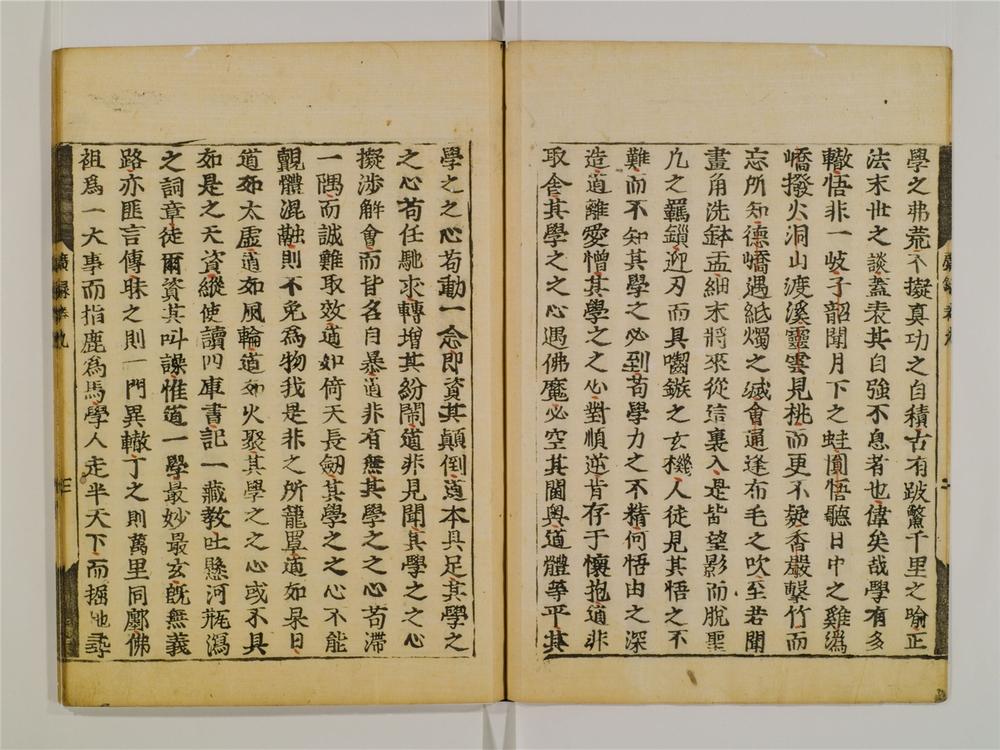 學之弗荒不擬真功之自積古有跛鱉千里之喻正
法末世之談蓋表其自強不息者也偉矣哉學有多
轍悟非一岐子韶聞月下之蛙圓悟聽日中之雞溈
嶠撥火洞山渡溪靈雲見桃而更不疑香嚴擊竹而
忘所知德嶠遇紙燭之滅會通逢布毛之吹至若聞
畫角洗鉢盂細末將來從這裏入是皆望影而脫聖
凡之羈鎖迎刃而具嚙鏃之玄機人徒見其悟之不
難而不知其學之必到苟學力之不精何悟由之深
造道離愛憎其學之之心對順逆肯存于懷抱道非
取舍其學之之心遇佛魔必空其閫奧道體等平其
學之之心苟動一念即資其顛倒道本具足其學之
之心苟任馳求轉增其紛鬧道非見聞其學之之心
擬涉解會而甘名自暴道非有無其學之之心苟滯
一隅而誠難取效道如倚天長劒其學之之心不能
覿體混融則不免為物我是非之所籠罩道如杲日
道如太虛道如風輪道如火聚其學之之心或不具
如是之天資縱使讀四庫書記一藏教吐懸河瓶瀉
之詞章徒爾資其叫譟惟道一學最妙最玄既無義
路亦匪言傳昧之則一門異轍了之則萬里同鄽佛
祖為一大事而指鹿為馬學人走半天下而掘地尋
廣錄卷九